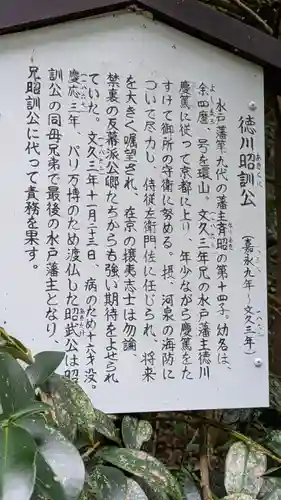 徳川昭訓公
あきくに
(嘉永九年~文久三年)
水戸藩第九代の藩主斉昭の第十四子。幼名は、
余四麿、号を環山。文久三年兄の水戸藩主徳川
慶篤に従って京都に上り、年少ながら慶篤をた
すけて御所の守衛に努める。摂、河泉の海防に
ついて尽力し、侍従左衛門佐に任じられ、将来
を大きく嘱望され、在京の攘夷志士は勿論、
禁裏の反幕派公卿たちからも強い期待をよせられ
ていた。文久三年十一月二十三日、病のため十六才没。
慶応三年、パリ万博のため渡仏した昭武公は昭
訓公の同母兄弟で最後の水戸藩主となり、
兄昭訓公に代って責務を果す。